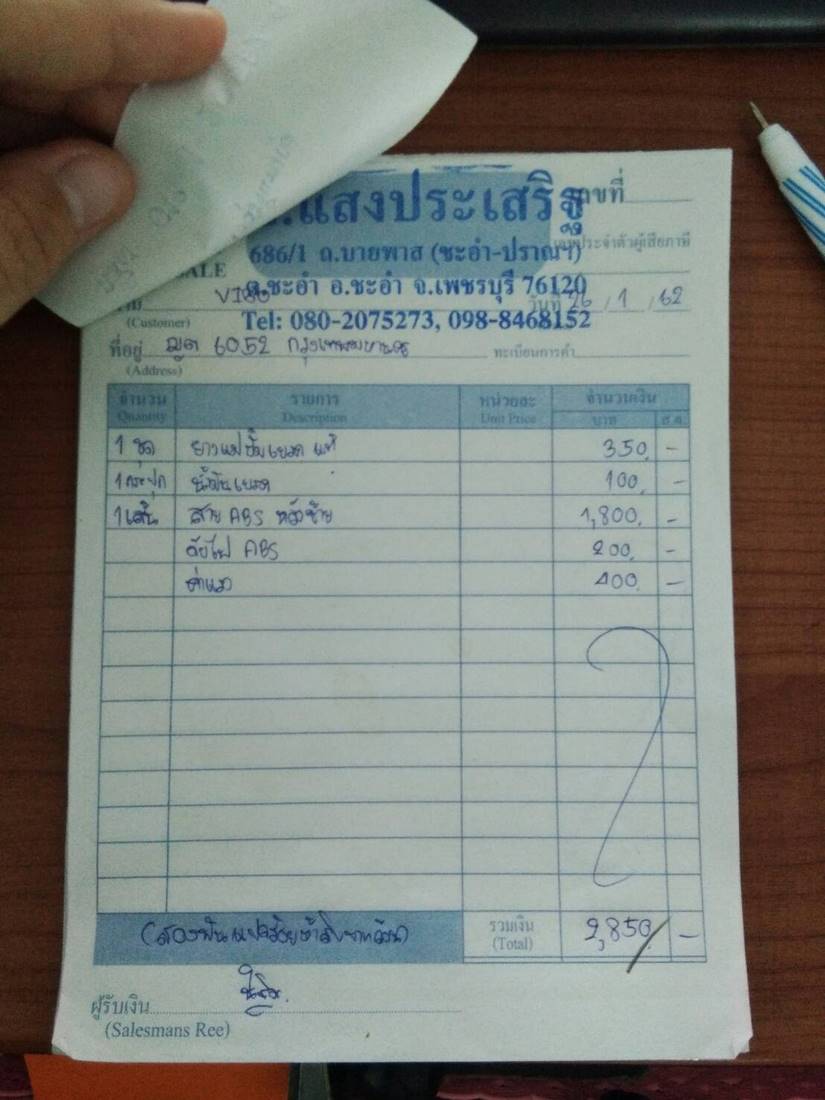 .แสงประเสริฐ
ลขที่
686/1 ถ.บายพาส (ชะอำ-ปราณฯ)
ประจำตัวผู้เสียภาษี
SALE
ต.ชะอำ อ.ชะอำ จ.เพชรบุรี 76120
VIGO วันที่ 26 / 1 / 62
(Customer) Tel: 080-2075273, 098-8468152
ที่อยู่ ญต 6052 กรุงเทพมหานคร ทะเบียนการค้า
(Address)
จำนวน รายการ หน่วยละ จำนวนเงิน
Quantity Description Unit Price บาท ส.ต.
1 ชุด ยางแม่ปั๊มเบรค แท้ 350 -
1 กระปุก น้ำมันเบรค 100 -
1 เส้น สาย ABS หลังซ้าย 1,800 -
ABS 200 -
ค่าแรง 400 -
(สองพันแปดร้อยห้าสิบบาทถ้วน) รวมเงิน 2,850 -
(Total)
ผู้รับเงิน
(Salesmans Ree)